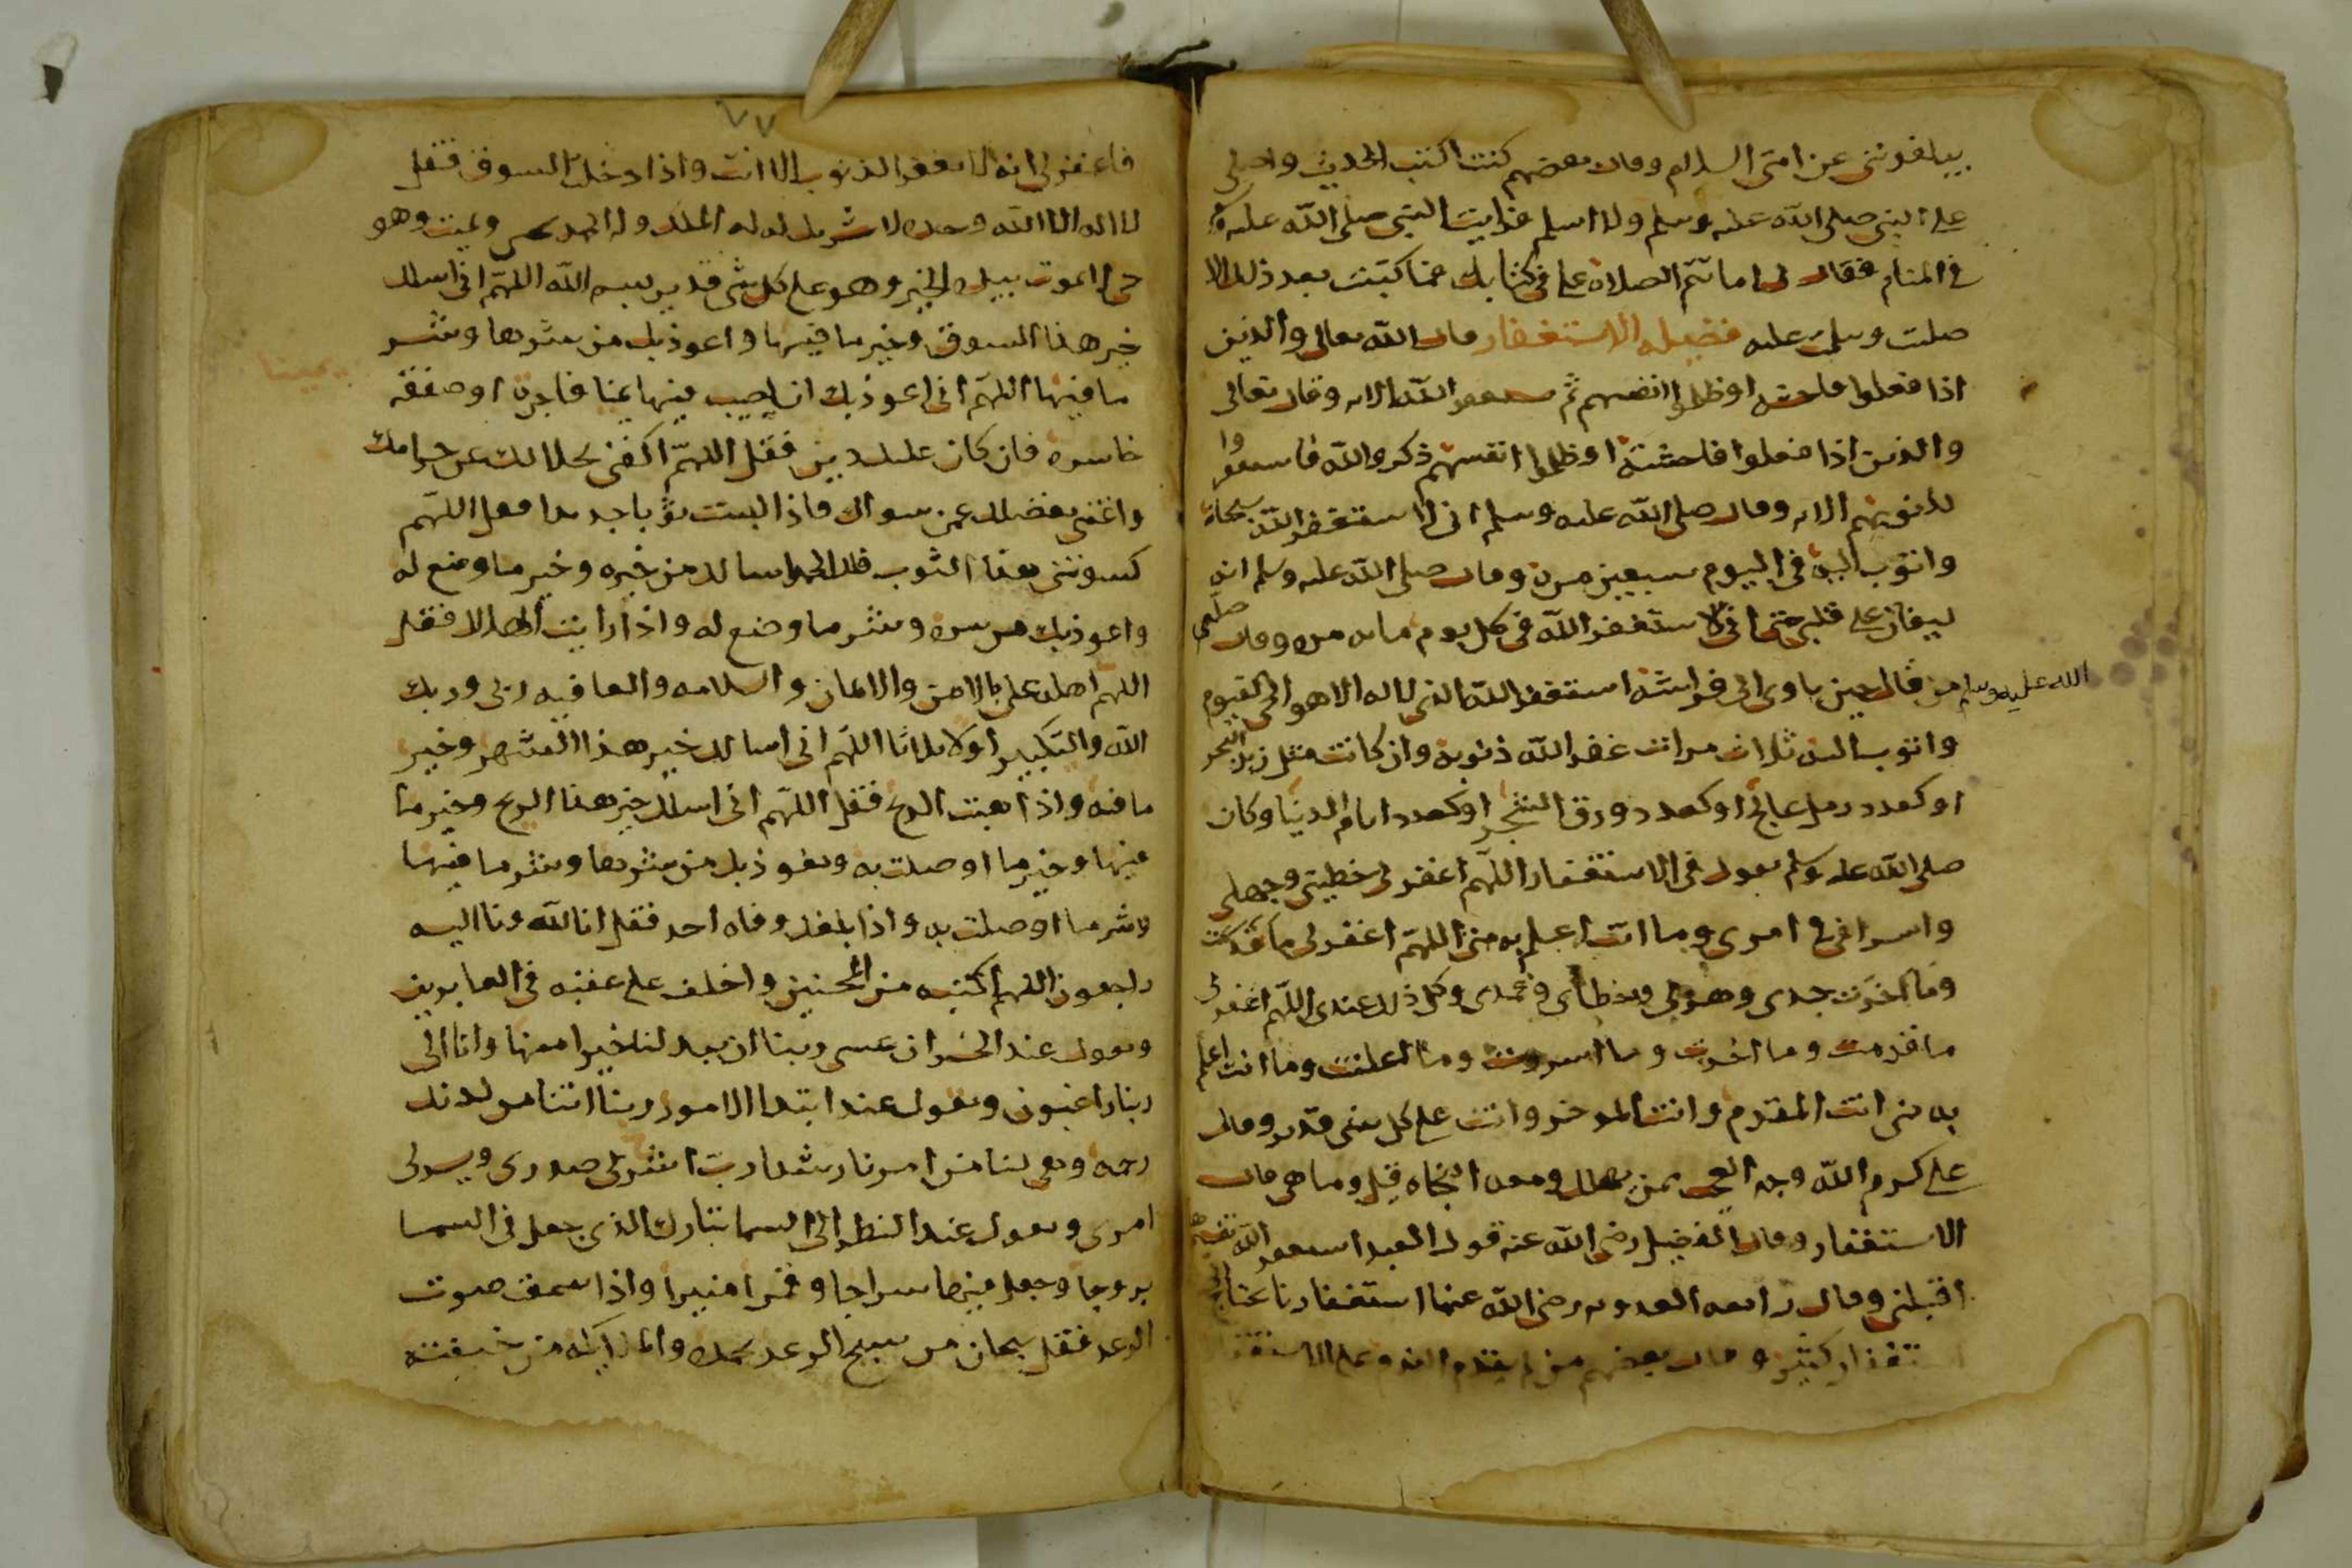 يبلغونني عن امتي السلام وقال بعضهم كنت اكتب الحديث واصلي
على النبي صلى الله عليه وسلم ولا اسلم فرايت النبي صلى الله عليه وسلم
في المنام فقال لي اما تتم الصلاة علي في كتابك فما كتبت بعد ذلك الا
صليت وسلمت عليه فضيلة الاستغفار قال الله تعالى والذين
اذا فعلوا فاحشه او ظلموا انفسهم ثم الله الايه وقال تعالى
والذين اذا فعلوا فاحشة او ظلموا انفسهم ذكروا الله فاستغفروا
لذنوبهم الايه وقال صلى الله عليه وسلم اني لاستغفر الله سبحانه
واتوب اليه في اليوم سبعين مرة وقال صلى الله عليه وسلم انه
ليغان على قلبي حتى اني لاستغفر الله في كل يوم مايه مره وقال صلى
الله عليه وسلم من قال حين ياوي الى فراشه استغفر الله الذي لا اله الا هو الحي القيوم
واتوب اليه ثلاث مرات غفر الله ذنوبه وان كانت مثل زبد البحر
او كعدد رمل عالج او كعدد ورق الشجر او كعدد ايام الدنيا وكان
صلى الله عليه وسلم يقول في الاستغفار اللهم اغفر لي خطيتي وجهلي
واسرافي في امري وما انت اعلم به مني اللهم اغفر لي ما قدمت
وما اخرت جدي وهزلي وخطاي وعمدي وكل ذلك عندي اللهم اغفر لي
ما قدمت وما اخرت وما اسررت وما اعلنت وما انت اعلم
به مني انت المقدم وانت الموخر وانت على كل شي قدير وقال
علي كرم الله وجهه العجب ممن يهلك ومعه النجاه قيل وما هي قال
الاستغفار وقال الفضيل رضي الله عنه قول العبد استغفر الله تفسيرها
اقبلني وقال رابعه العدويه رضي الله عنها استغفارنا يحتاج الى
استغفار كثير وقال بعضهم من لم يقدم الندم على الاستغفار
٧٧
فاغفر لي انه لا يغفر الذنوب الا انت واذا دخلت السوق فقل
لا اله الا الله وحده لا شريك له له الملك وله الحمد يحيي ويميت وهو
حي لا يموت بيده الخير وهو على كل شي قدير بسم الله اللهم اني اسالك
خير هذا السوق وخير ما فيها واعوذ بك من شرها وشر
ما فيها اللهم اني اعوذ بك ان اصيب فيها يمينا فاجرة او صفقه
يمينا
خاسره فان كان عليك دين فقل اللهم اكفني بحلالك عن حرامك
واغنني بفضلك عمن سواك فاذا لبست ثوبا جديدا فقل اللهم
كسوتني هذا الثوب فلك الحمد اسالك من خيره وخير ما وضع له
واعوذ بك من شره وشر ما وضع له واذا رايت الهلال فقل
اللهم اهله علي بالامن والايمان والسلامه والعافيه ربي وربك
الله والتكبير اولا ثلاثا اللهم اني اسالك خير هذا الشهر وخير
ما فيه واذا هبت الريح فقل اللهم اني اسالك خير هذا الريح وخير ما
فيها وخير ما اوصلت به ونعوذ بك من شرها وشر ما فيها
وشر ما اوصلت به واذا بلغك وفاه احد فقل انا لله وانا اليه
راجعون اللهم اكتبه من المحسنين واخلف على عقبه في الغابرين
وتقول عند الخسران عسى ربنا ان يبدلنا خيرا منها وانا الى
ربنا راغبون وتقول عند ابتدا الامور ربنا اتنا من لدنك
رحمه وهي لنا من امرنا رشدا رب اشرح لي صدري ويسر لي
امري وتقول عند النظر الى السما تبارك الذي جعل في السما
بروجا وجعل فيها سراجا وقمرا منيرا واذا سمعت صوت
الرعد فقل سبحان من يسبح الرعد بحمده والملايكه من خيفته